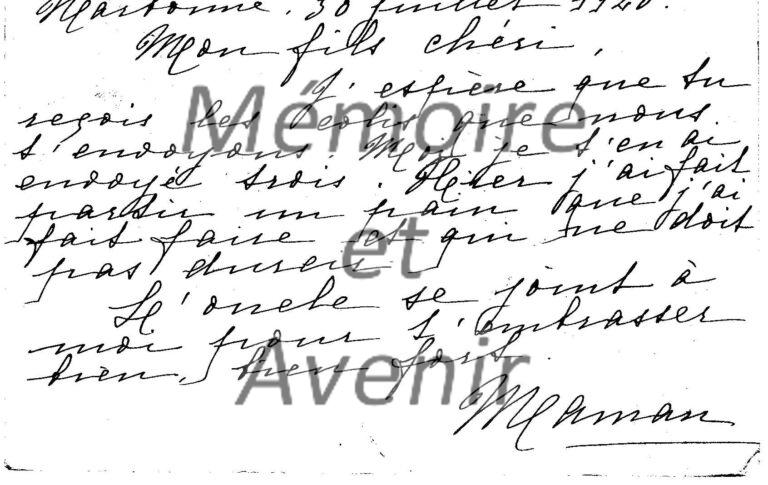 Narbonne. 30 juillet
Mon fils chéri,
J'espère que tu
reçois les colis que nous
t'envoyons. Moi je t'en ai
envoyé trois. Hier j'ai fait
partir un pain que j'ai
fait faire et qui ne doit
pas durcir
L'oncle se joint à
moi pour t'embrasser
bien, bien fort.
Maman
Mémoire
et
Avenir